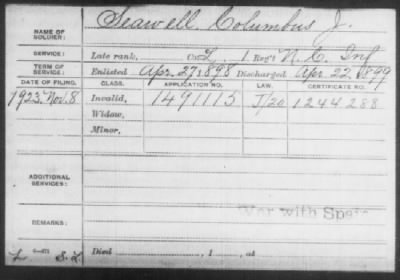 NAME OF SOLDIER: Seawell, Columbus J.
SERVICE: Late rank, Co. L, 1 Reg't N.C. Inf
TERM OF SERVICE: Enlisted Apr. 27, 1898 Discharged Apr. 22, 1899
DATE OF FILING. CLASS. APPLICATION NO. LAW. CERTIFICATE NO.
1923 Nov. 8 Invalid, 1491115 J/20 1244288
Widow,
Minor,
ADDITIONAL SERVICES:
War with Spain
REMARKS:
Died , 1 , at